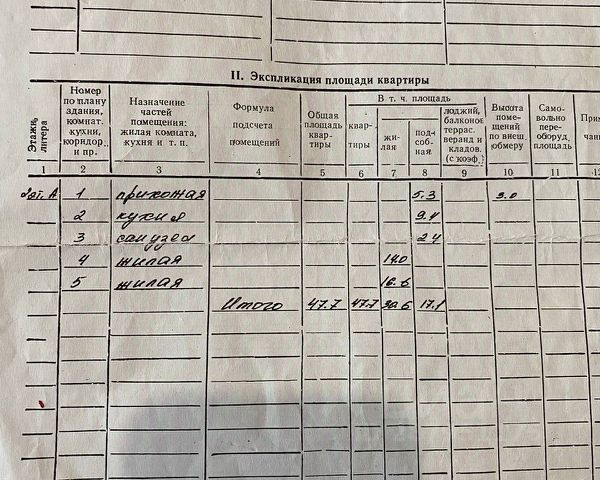 II. Экспликация площади квартиры
Этажи, литера
Номер по плану здания, комнат. кухни, коридор. и пр.
Назначение частей помещения: жилая комната, кухня и т. п.
Формула подсчета помещений
Общая площадь квартиры
В т. ч. площадь
квартиры
жилая
подсобная
лоджий, балконов террас. веранд и кладов. (с коэф.)
Высота помещений по внеш. обмеру
Самовольно переоборуд. площадь
1 2 3 4 5 6 7 8 9 10 11 12
2эт. А 1 прихожая 5.3 3.0
2 кухня 9.4
3 санузел 2.4
4 жилая 14.0
5 жилая 16.6
Итого 47.7 47.7 30.6 17.1